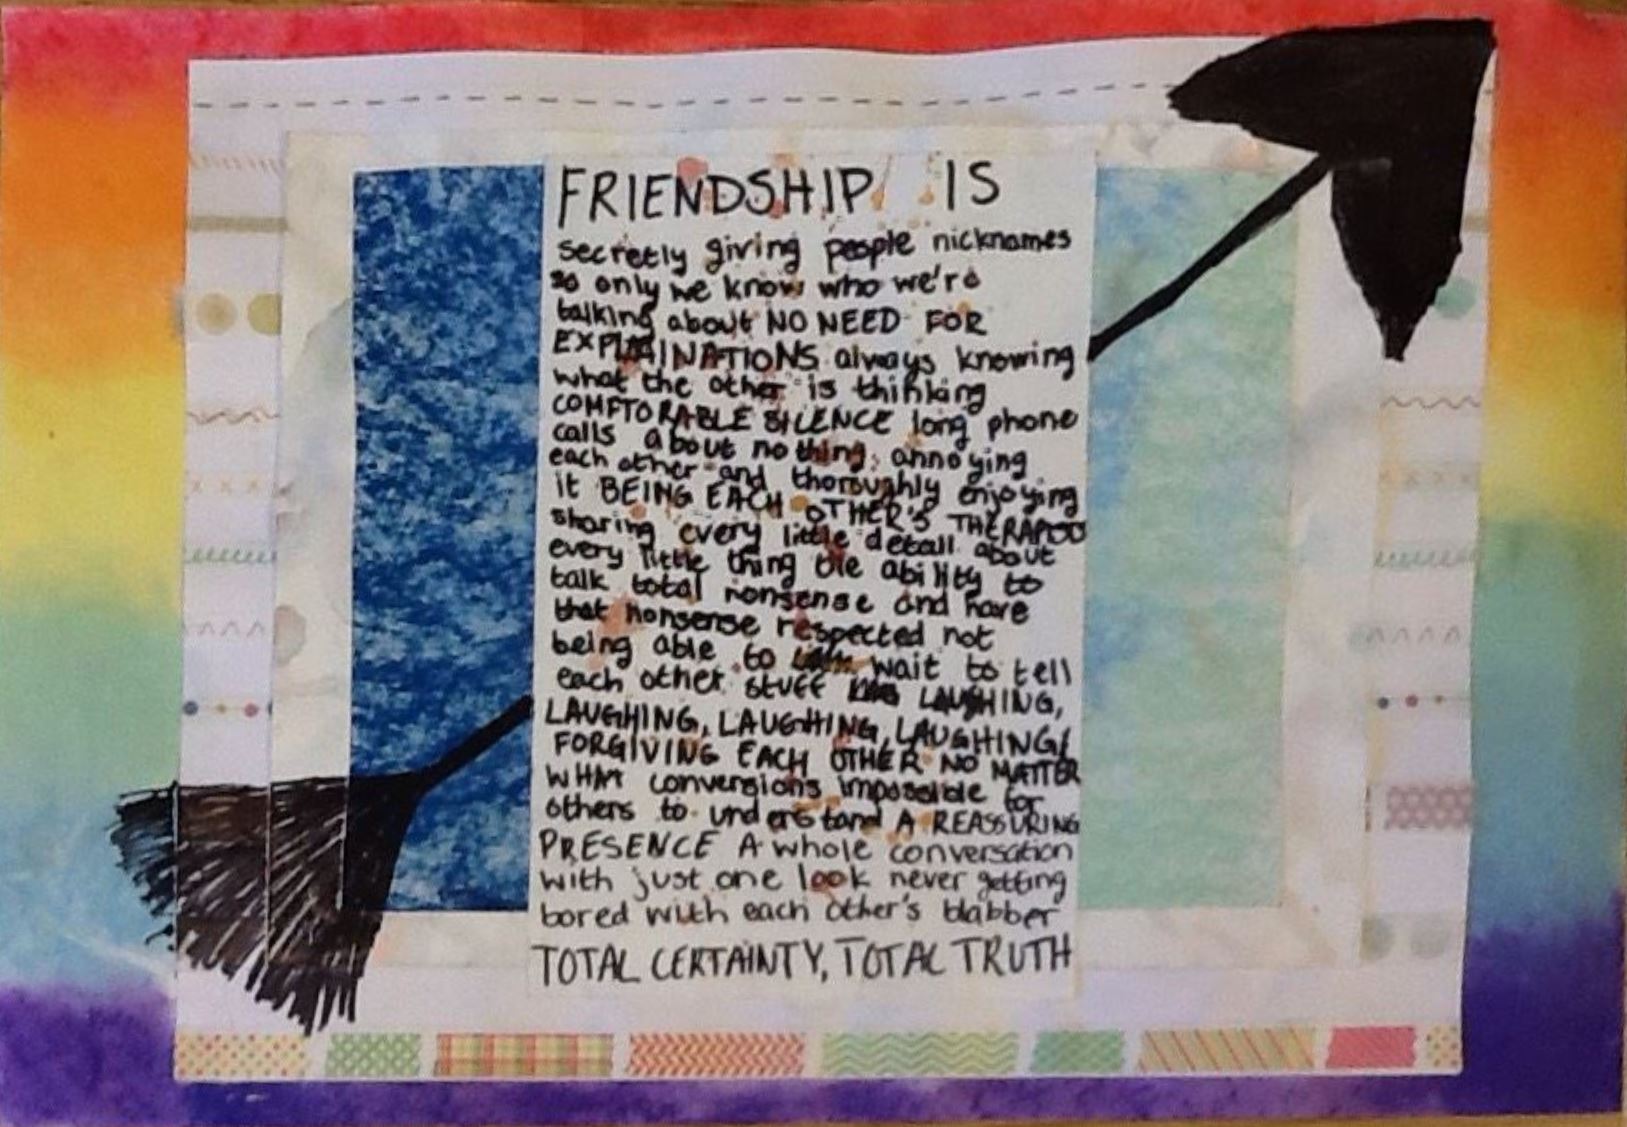 FRIENDSHIP IS
secretly giving people nicknames
so only we know who we're
talking about NO NEED FOR
EXPLAINATIONS always knowing
what the other is thinking
COMFTORABLE SILENCE long phone
calls about nothing, annoying
each other and thoroughly enjoying
it BEING EACH OTHER'S THERAPIST
sharing every little detail about
every little thing the ability to
talk total nonsense and have
that nonsense respected not
being able to wait to tell
each other stuff LAUGHING,
LAUGHING, LAUGHING, LAUGHING!
FORGIVING EACH OTHER NO MATTER
WHAT conversions impossible for
others to understand A REASSURING
PRESENCE A whole conversation
with just one look never getting
bored with each other's blabber
TOTAL CERTAINTY, TOTAL TRUTH